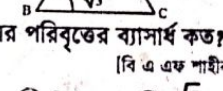 B C
পরিবৃত্তের ব্যাসার্ধ কত?
[বি এ এফ শাহীন